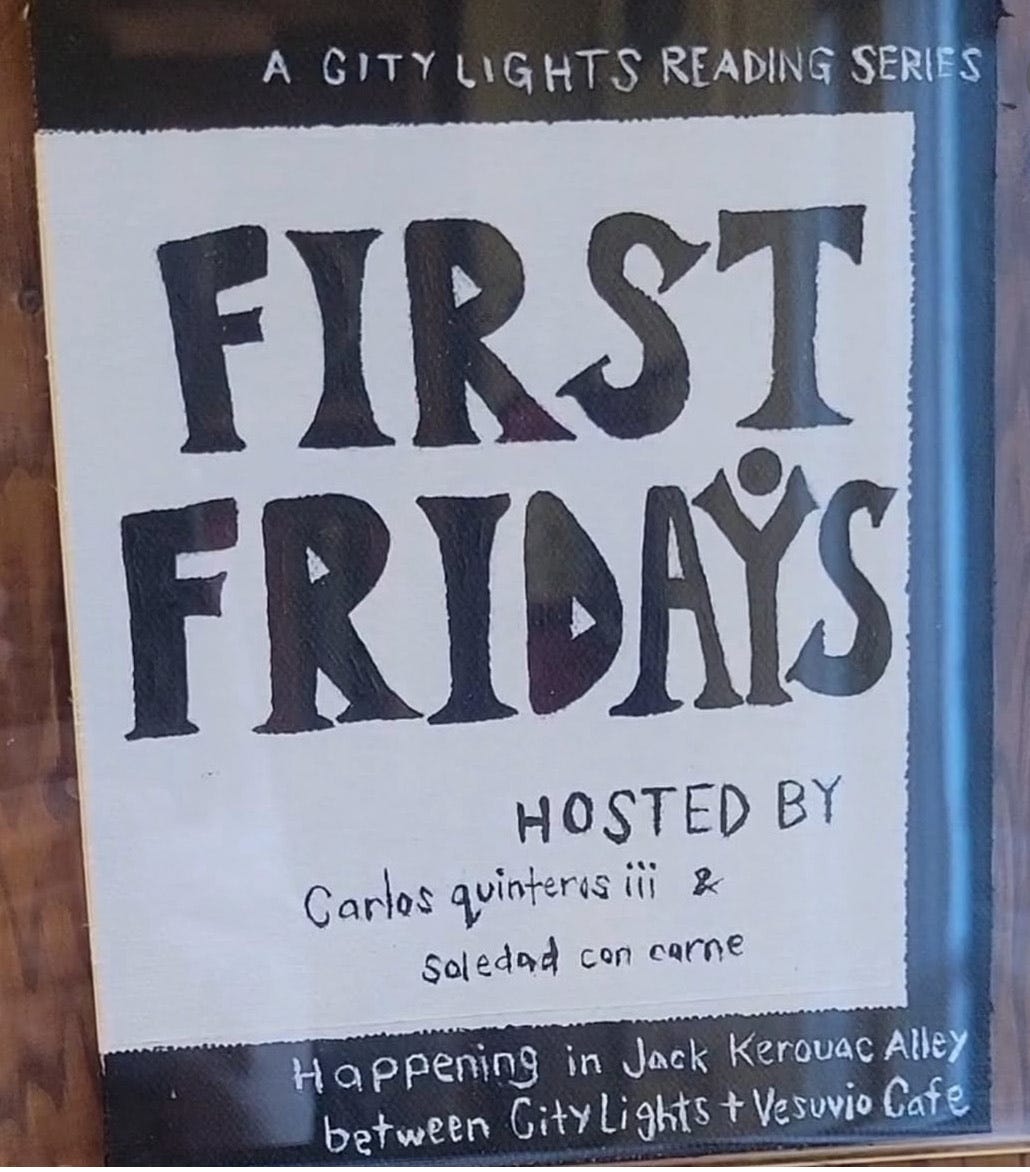 A CITY LIGHTS READING SERIES
FIRST
FRIDAYS
HOSTED BY
Carlos quinteros iii &
soledad con carne
Happening in Jack Kerouac Alley
between City Lights + Vesuvio Cafe